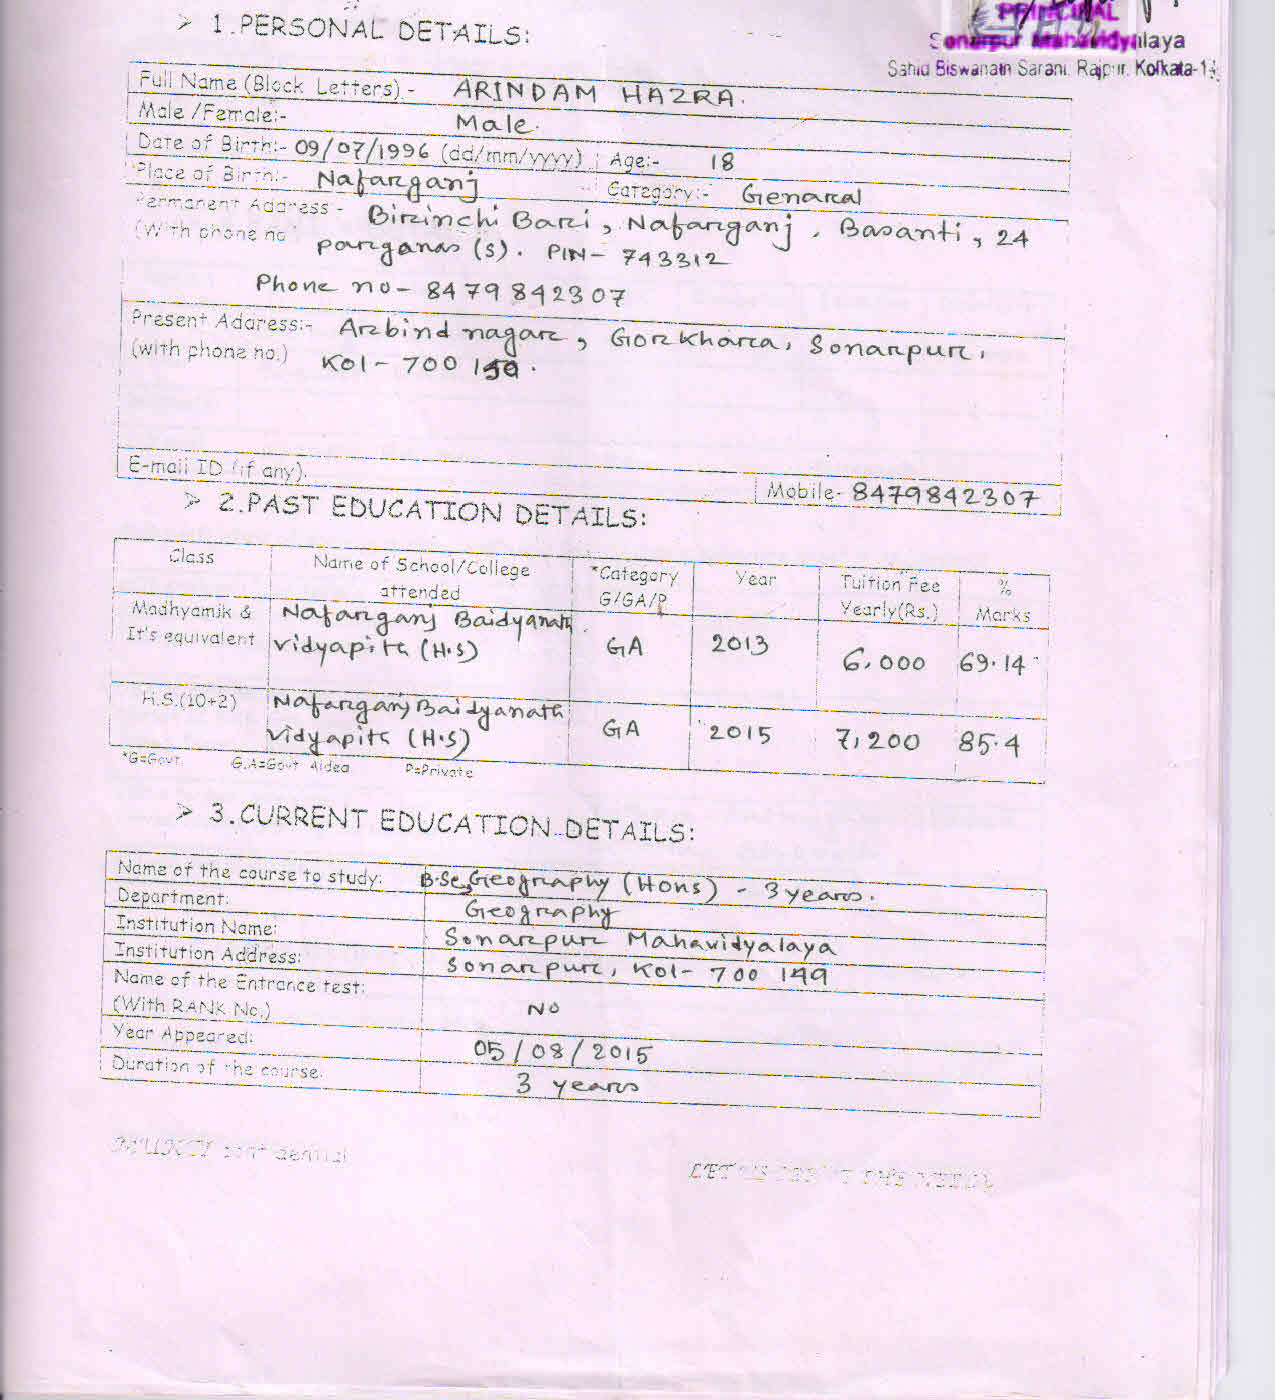 PRINCIPAL
Sonarpur Mahavidyalaya
Sahid Biswanath Sarani, Rajpur, Kolkata-14
➢ 1.PERSONAL DETAILS:
Full Name (Block Letters).- ARINDAM HAZRA.
Male /Female:- Male.
Date of Birth:- 09/07/1996 (dd/mm/yyyy) Age:- 18
Place of Birth:- Nafarganj Category:- Genaral
Permanent Address - Birinchi Bari, Nafarganj, Basanti, 24
(With phone no parganas (S). PIN- 743312
Phone no- 8479842307
Present Address:- Arbind nagar, Gorkhara, Sonarpur,
(with phone no.) Kol- 700 150.
E-mail ID (if any).
Mobile- 8479842307
➢ 2.PAST EDUCATION DETAILS:
Class Name of School/College attended *Category G/GA/P Year Tuition Fee Yearly(Rs.) % Marks
Madhyamik & It's equivalent Nafarganj Baidyanath Vidyapith (H.S) GA 2013 6,000 69.14
H.S.(10+2) Nafarganj Baidyanath Vidyapith (H.S) GA 2015 7,200 85.4
*G=Govt G.A=Govt Aided P=Private
➢ 3.CURRENT EDUCATION DETAILS:
Name of the course to study: B.Sc, Geography (Hons) - 3 years.
Department: Geography
Institution Name: Sonarpur Mahavidyalaya
Institution Address: Sonarpur, Kol- 700 149
Name of the Entrance test:
(With RANK No.) NO
Year Appeared: 05/08/2015
Duration of the course: 3 years